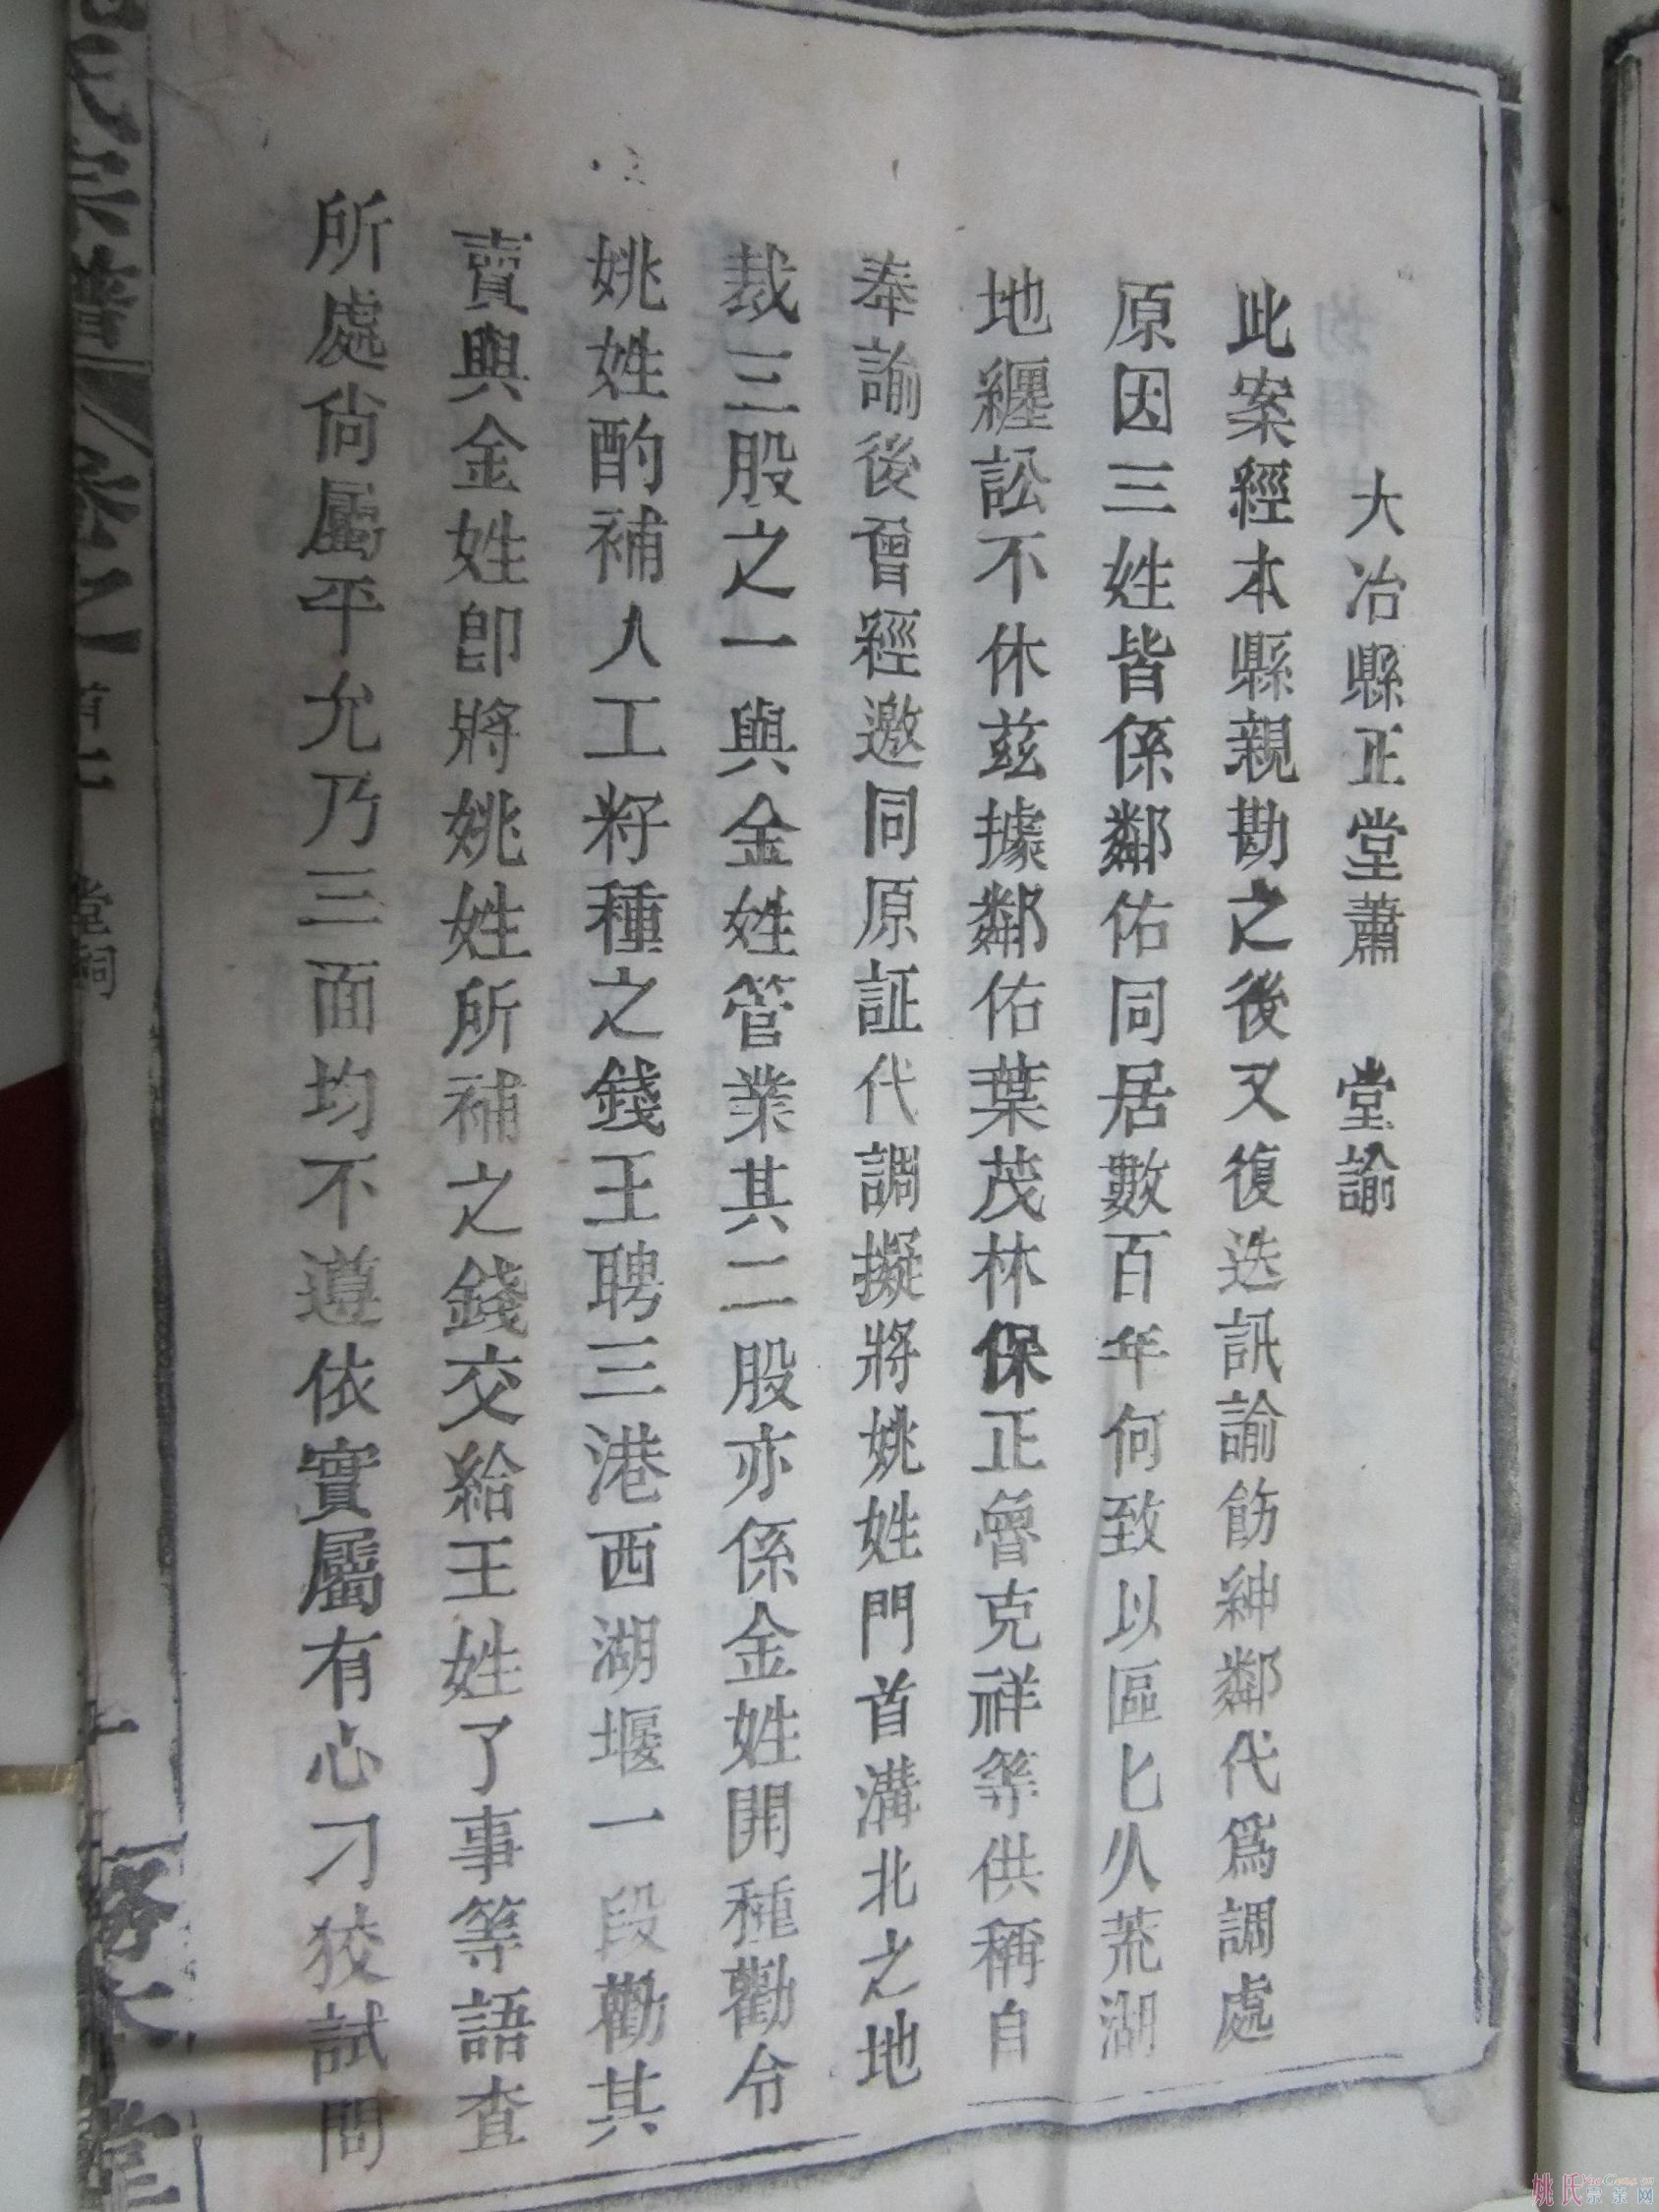 大冶縣正堂蕭　堂諭
此案經本縣親勘之後又復迭訊諭飭紳鄰代爲調處
原因三姓皆係鄰佑同居數百年何致以區匕久荒湖
地纒訟不休兹據鄰佑葉茂林保正魯克祥等供稱自
奉諭後曾經邀同原証代調擬將姚姓門首溝北之地
裁三股之一與金姓管業其二股亦係金姓開種勸令
姚姓酌補人工籽種之錢王聘三港西湖堰一段勸其
賣與金姓即將姚姓所補之錢交給王姓了事等語查
所處尙屬平允乃三面均不遵依實屬有心刁狡試問
氏宗譜
卷之一
首士
堂詞
姚氏宗亲网